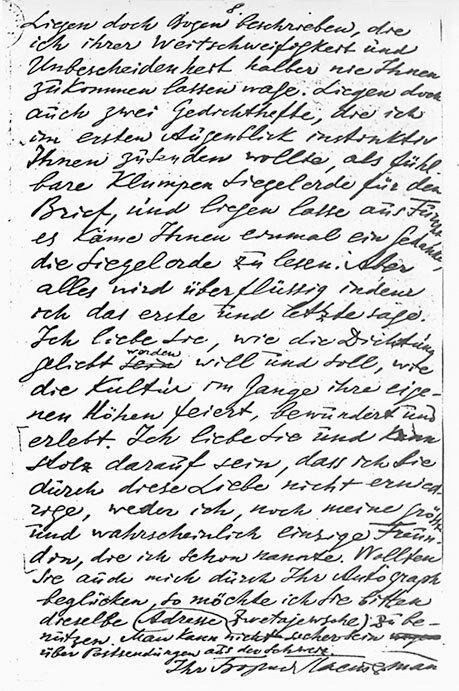 Liegen doch Bogen 8 beschrieben, die
ich ihrer Weitschweifigkeit und
Unbescheidenheit halber nie Ihnen
zukommen lassen wage. Liegen doch
auch zwei Gedichthefte, die ich
im ersten Augenblick instinktiv
Ihnen zusenden wollte, als fühl-
bare Klumpen Siegelerde für den
Brief, und liegen lasse aus Furcht
es käme Ihnen einmal ein Gedanke,
die Siegelerde zu lesen. Aber
alles wird überflüssig indem
ich das erste und letzte sage.
Ich liebe Sie, wie die Dichtung
geliebt worden will und soll, wie
die Kultur im Gange ihre eige-
nen Höhen feiert, bewundert und
erlebt. Ich liebe Sie und kann
stolz darauf sein, dass ich Sie
durch diese Liebe nicht ernied-
rige, weder ich, noch meine größte
und wahrscheinlich einzige Freun-
din, die ich schon nannte. Wollten
Sie auch mich durch Ihr Autograph
beglücken, so möchte ich Sie bitten
dieselbe Adresse (Zwetajewsche) zu be-
nutzen. Man kann nicht sicher sein
über Postsendungen aus der Schweiz
Ihr